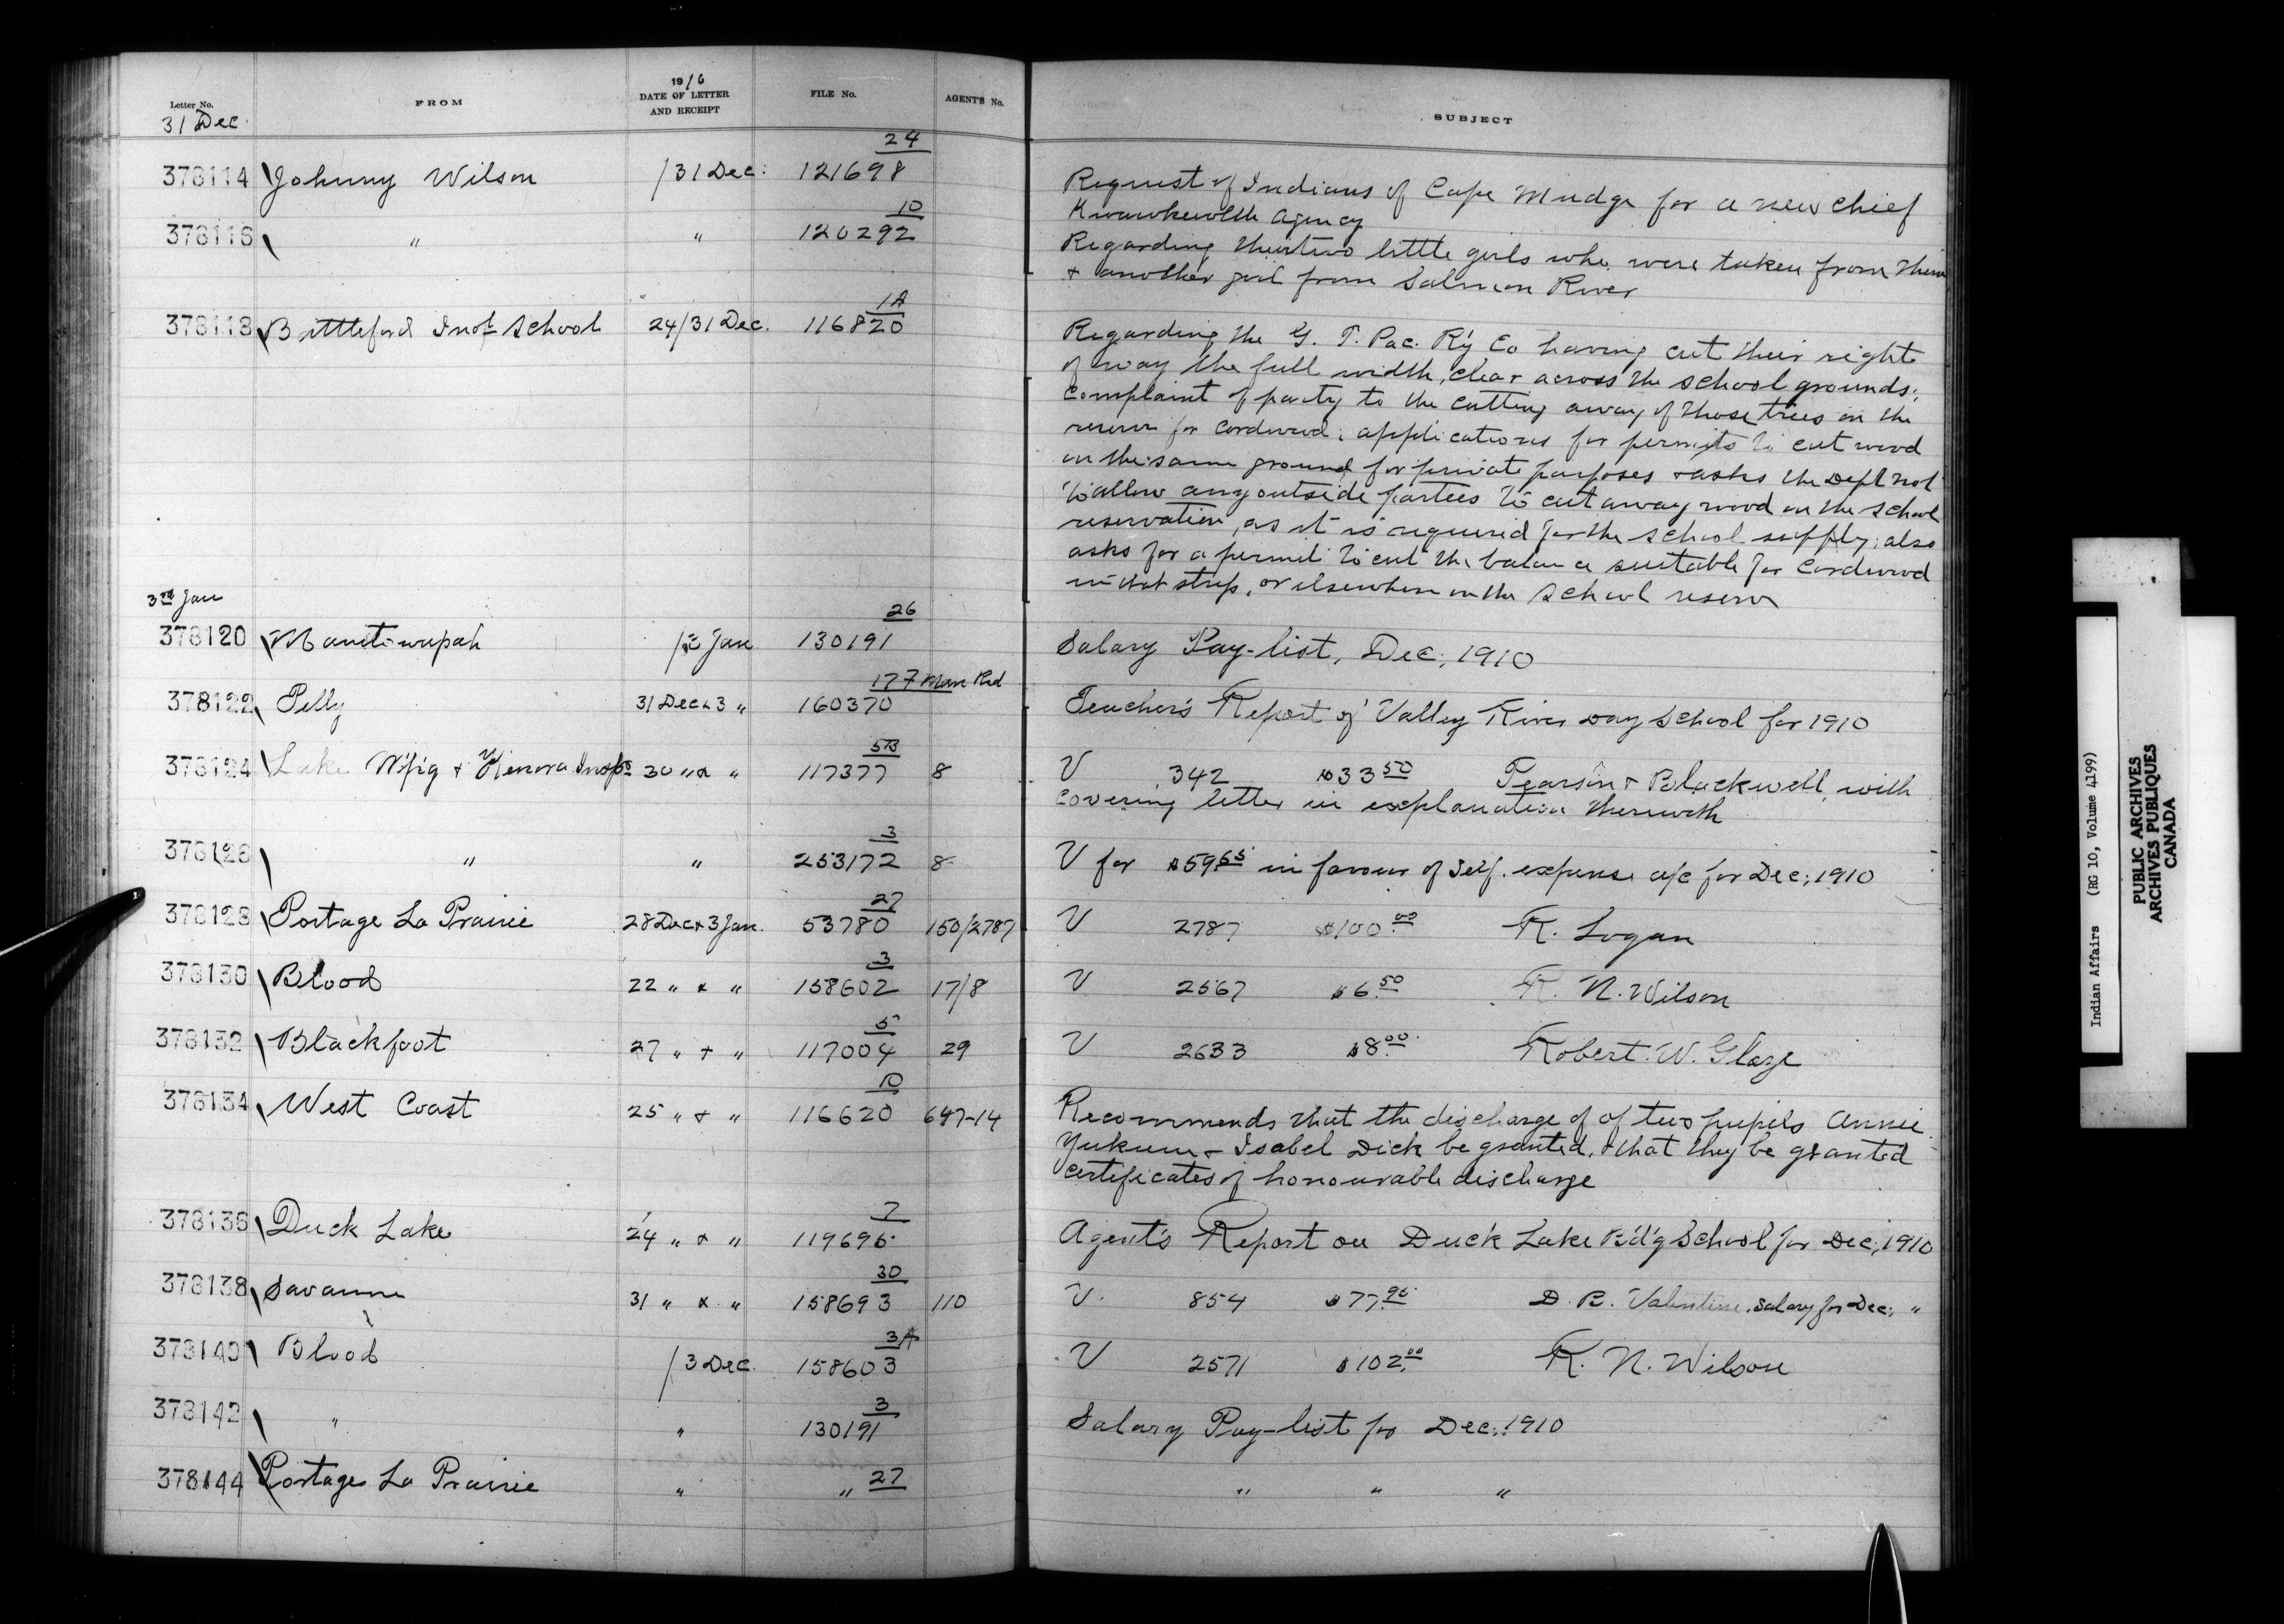 Letter No. FROM 1910 DATE OF LETTER AND RECEIPT FILE No. AGENT'S No. SUBJECT
31 Dec.
24
378114 Johnny Wilson /31 Dec. 121698 Request of Indians of Cape Mudge for a new chief
Kwawkewlth Agency
10
378116 " " 120292 Regarding their two little girls who were taken from them
& another girl from Salmon River
1A
378118 Battleford Indl School 24/31 Dec. 116820 Regarding the G. T. Pac. Ry Co having cut their right
of way the full width, clear across the school grounds;
complaint of party to the cutting away of those trees on the
reserve for cordwood; applications for permits to cut wood
on the same ground for private purposes & asks the Dept not
to allow any outside parties to cut away wood on the school
reservation, as it is required for the school supply; also
asks for a permit to cut the balance suitable for cordwood
in that strip, or elsewhere on the school reserve
3rd Jan
26
378120 Manitowapah / Jan 130191 Salary Pay-list, Dec; 1910
177 Man Rd
378122 Pelly 31 Dec & 3 " 160370 Teacher's Report of Valley River Day School for 1910
5B
378124 Lake W'p'g & Kenora Insp 30 " & " 117377 8 V 342 $33.50 Pearson & Blackwell, with
covering letter in explanation therewith
3
378126 " " 253172 8 V for $59.65 in favour of Self. expense a/c for Dec; 1910
27
378128 Portage La Prairie 28 Dec & 3 Jan. 53780 150/2787 V 2787 $100.00 R. Logan
3
378130 Blood 22 " & " 158602 17/8 V 2567 $6.50 R. N. Wilson
5
378132 Blackfoot 27 " + " 117004 29 V 2633 $8.00 Robert. W. Glaze
10
378134 West Coast 25 " + " 116620 647-14 Recommends that the discharge of of two pupils Annie
Yukum & Isabel Dick be granted, & that they be granted
certificates of honourable discharge
7
378136 Duck Lake 24 " & " 119695 Agent's Report on Duck Lake B'd'g School for Dec; 1910
30
378138 Savanne 31 " & " 158693 110 V. 854 $77.95 D. B. Valentine. Salary for Dec; "
3A
378140 Blood /3 Dec. 158603 V 2571 $102.00 R. N. Wilson
3
378142 " " 130191 Salary Pay-list for Dec; 1910
378144 Portage La Prairie " " 27 " " "
Indian Affairs (RG 10, Volume 4199)
PUBLIC ARCHIVES
ARCHIVES PUBLIQUES
CANADA